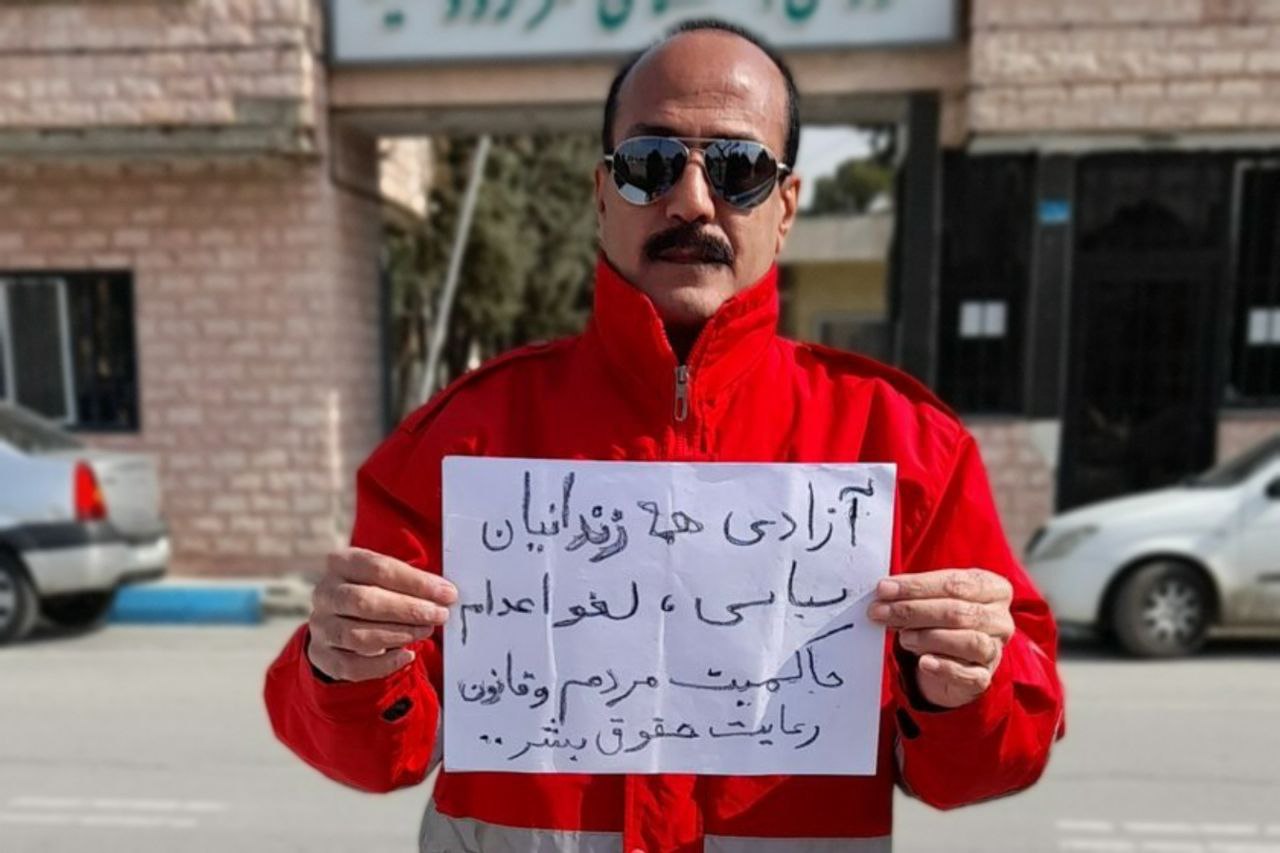 آزادی همه زندانیان
سیاسی، لغو اعدام
حاکمیت مردم و قانون
رعایت حقوق بشر..